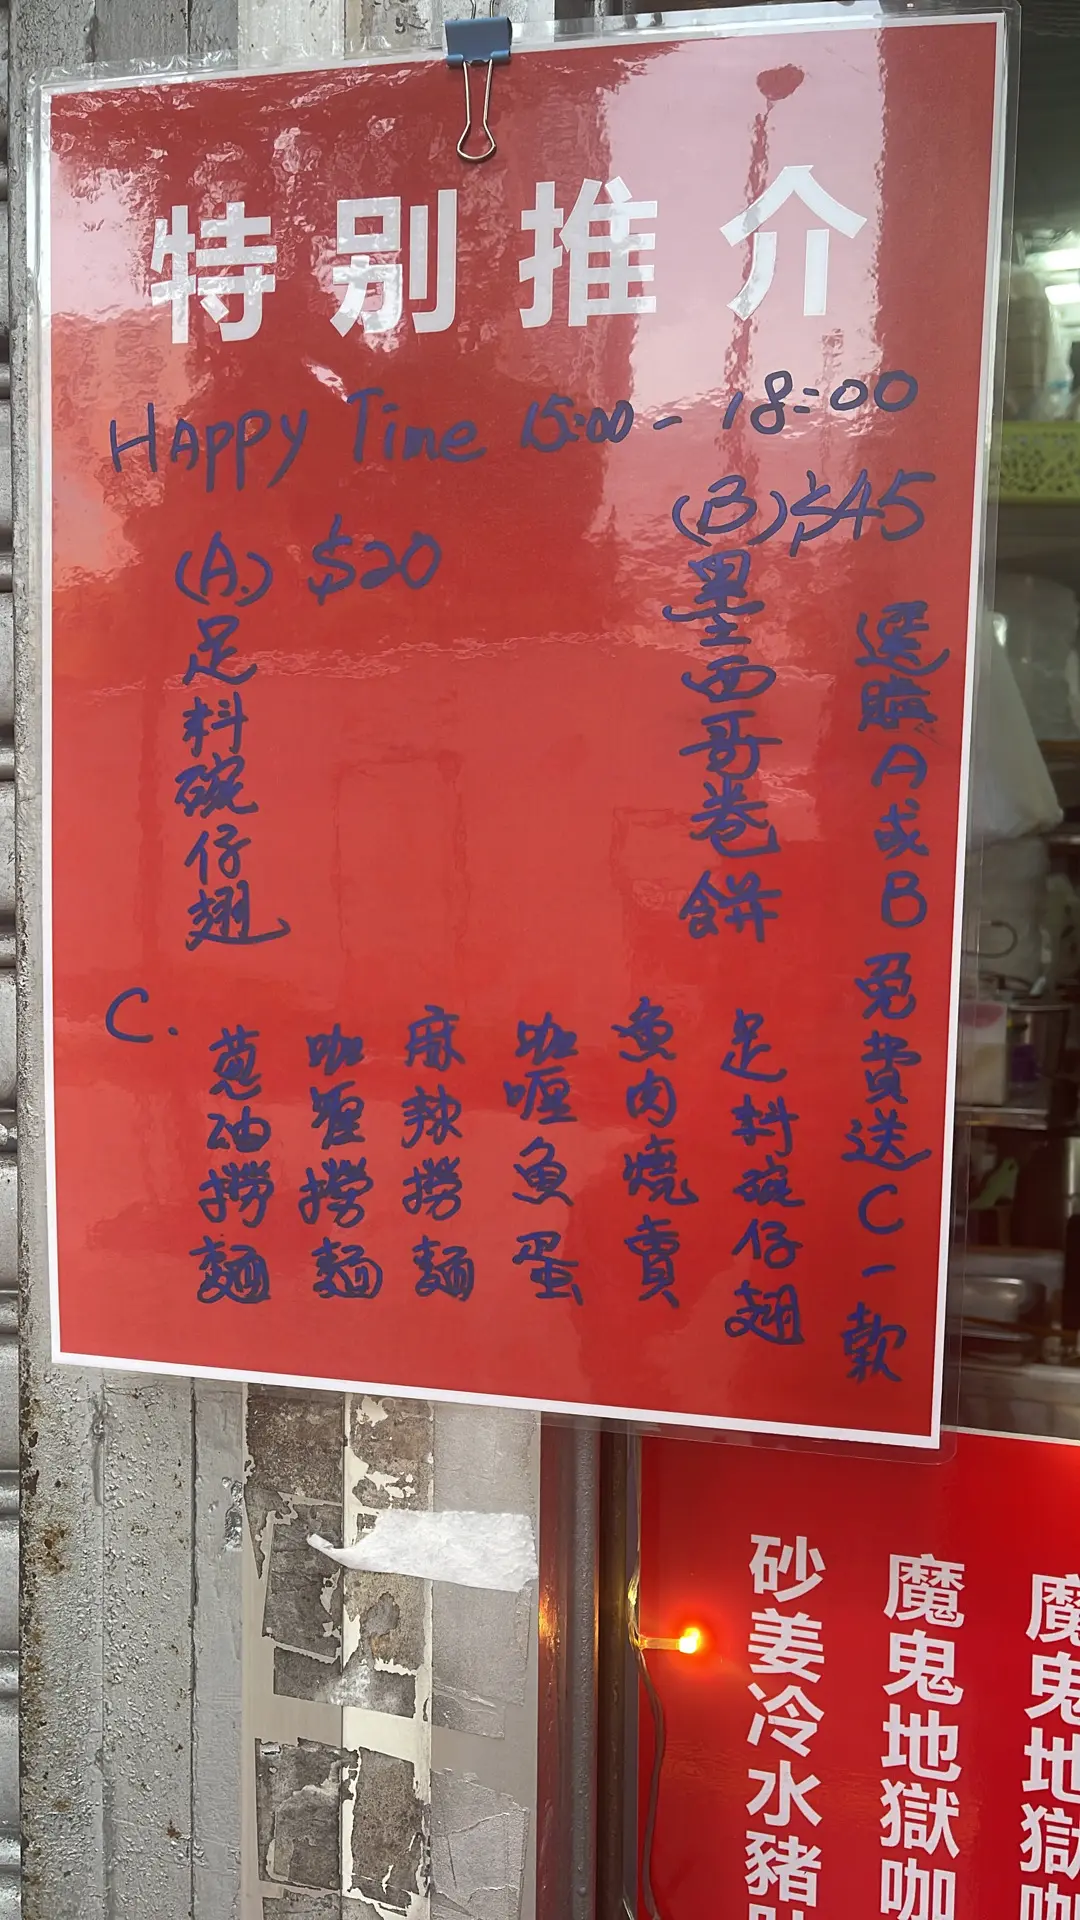 特别推介
Happy Time 15:00 - 18:00
(A.) $20
足料碗仔翅
(B) $45
墨西哥卷餅
選購A或B免費送C一款
C.
蔥油撈麵
咖喱撈麵
麻辣撈麵
咖喱魚蛋
魚肉燒賣
足料碗仔翅
砂姜冷水豬
魔鬼地獄咖
魔鬼地獄咖